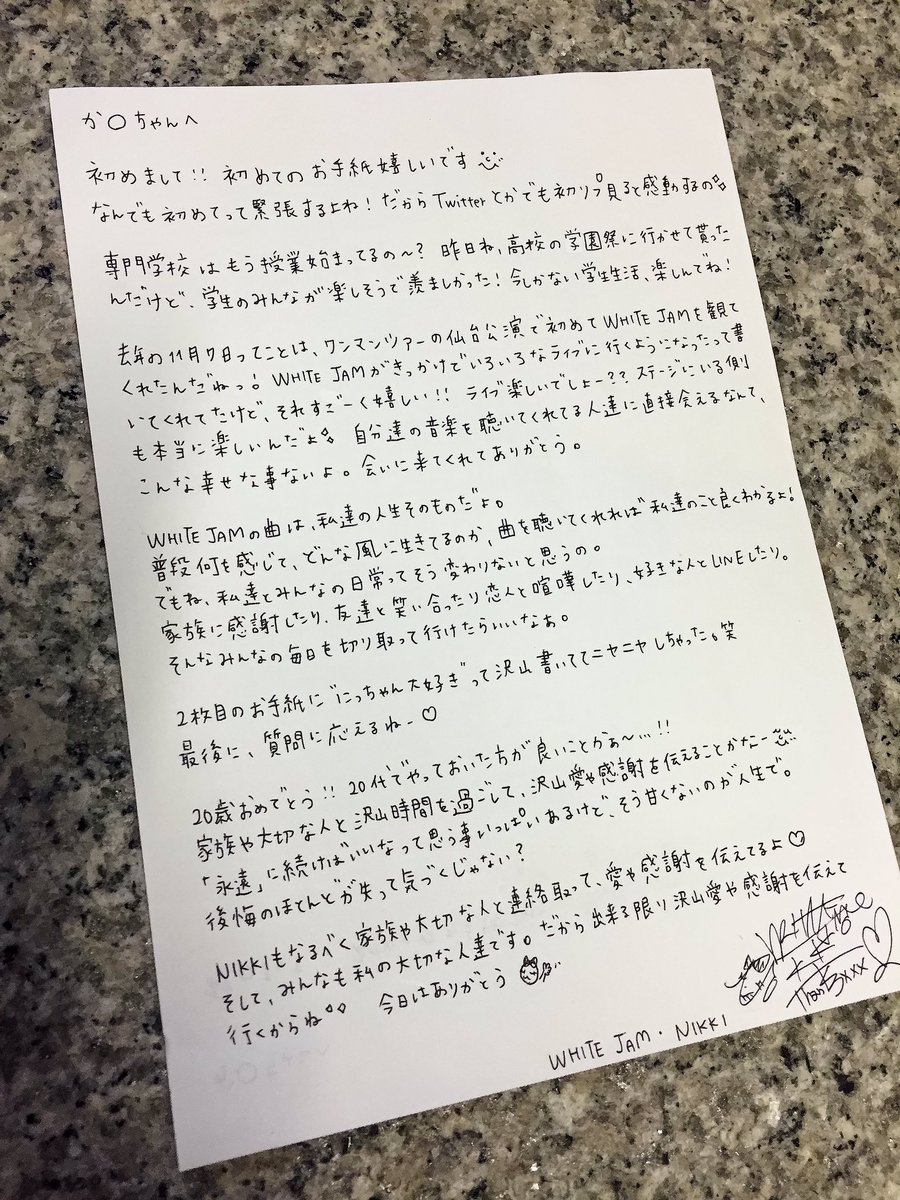 か○ちゃんへ
初めまして!! 初めてのお手紙嬉しいです
なんでも初めてって緊張するよね! だから Twitterとかでも初リプ見ると感動するの
専門学校はもう授業始まってるの〜? 昨日ね、高校の学園祭に行かせて貰った
んだけど、学生のみんなが楽しそうで羨ましかった! 今しかない学生生活、楽しんでね!
去年の11月7日ってことは、ワンマンツアーの仙台公演で初めてWHITE JAMを観て
くれたんだねっ! WHITE JAMがきっかけでいろいろなライブに行くようになったって書
いてくれてたけど、それすごーく嬉しい!! ライブ楽しいでしょー?? ステージにいる側
も本当に楽しいんだよ 自分達の音楽を聴いてくれてる人達に直接会えるなんて、
こんな幸せな事ないよ。会いに来てくれてありがとう。
WHITE JAMの曲は、私達の人生そのものだよ。
普段何を感じて、どんな風に生きてるのか、曲を聴いてくれれば私達のこと良くわかるよ!
でもね、私達とみんなの日常ってそう変わりないと思うの。
家族に感謝したり、友達と笑い合ったり恋人と喧嘩したり、好きな人とLINEしたり。
そんなみんなの毎日を切り取って行けたらいいなぁ。
2枚目のお手紙に"にっちゃん大好き"って沢山書いててニヤニヤしちゃった。笑
最後に、質問に応えるねー♡
20歳おめでとう!! 20代でやっておいた方が良いことかぁ〜...!!
家族や大切な人と沢山時間を過ごして、沢山愛や感謝を伝えることかなー
「永遠」に続けばいいなって思う事いっぱいあるけど、そう甘くないのが人生で。
後悔のほとんどが失って気づくじゃない?
NIKKIもなるべく家族や大切な人と連絡取って、愛や感謝を伝えてるよ♡
そして、みんなも私の大切な人達です。だから出来る限り沢山愛や感謝を伝えて
行くからね 今日はありがとう
Thanks xxx
WHITE JAM・NIKKI